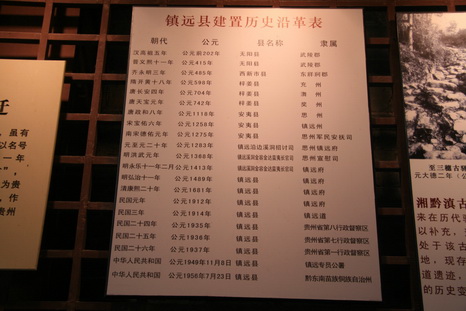 镇远县建置历史沿革表
朝代 公元 县名称 隶属
汉高祖五年 公元前202年 无阳县 武陵郡
晋义熙十一年 公元415年 无阳县 武陵郡
齐永明三年 公元485年 西新市县 东牂牁郡
隋开黄十八年 公元598年 梓姜县 州
唐长安四年 公元704年 梓姜县 州
唐天宝元年 公元742年 梓姜县 州
唐政和八年 公元1118年 安夷县 思州
宋宝佑六年 公元1258年 安夷县 镇远州
南宋德佑元年 公元1275年 安夷县 思州军民安抚司
元至元二十年 公元1283年 思州
明洪武元年 公元1368年 思州宣慰司
明永乐十一年二月 公元1413年 镇远府
明弘治十一年 公元1489年 镇远县 镇远府
清康熙二十年 公元1681年 镇远县 镇远府
民国元年 公元1912年 镇远县 镇远府
民国三年 公元1914年 镇远县 镇远道
民国二十四年 公元1935年 镇远县 贵州省第八行政督察区
民国二十五年 公元1936年 镇远县 贵州省第七行政督察区
民国二十六年 公元1937年 镇远县 贵州省第一行政督察区
中华人民共和国 公元1949年11月8日 镇远县 镇远专员公署
中华人民共和国 公元1956年7月23日 镇远县 黔东南苗族侗族自治州
，虽有
以名号
一年
为贵
，作
贵州
至三穗古
元大德二年（公
湘黔滇古
来在历代
以补充，
处于该古
地，现存
道遗迹，
的历史变